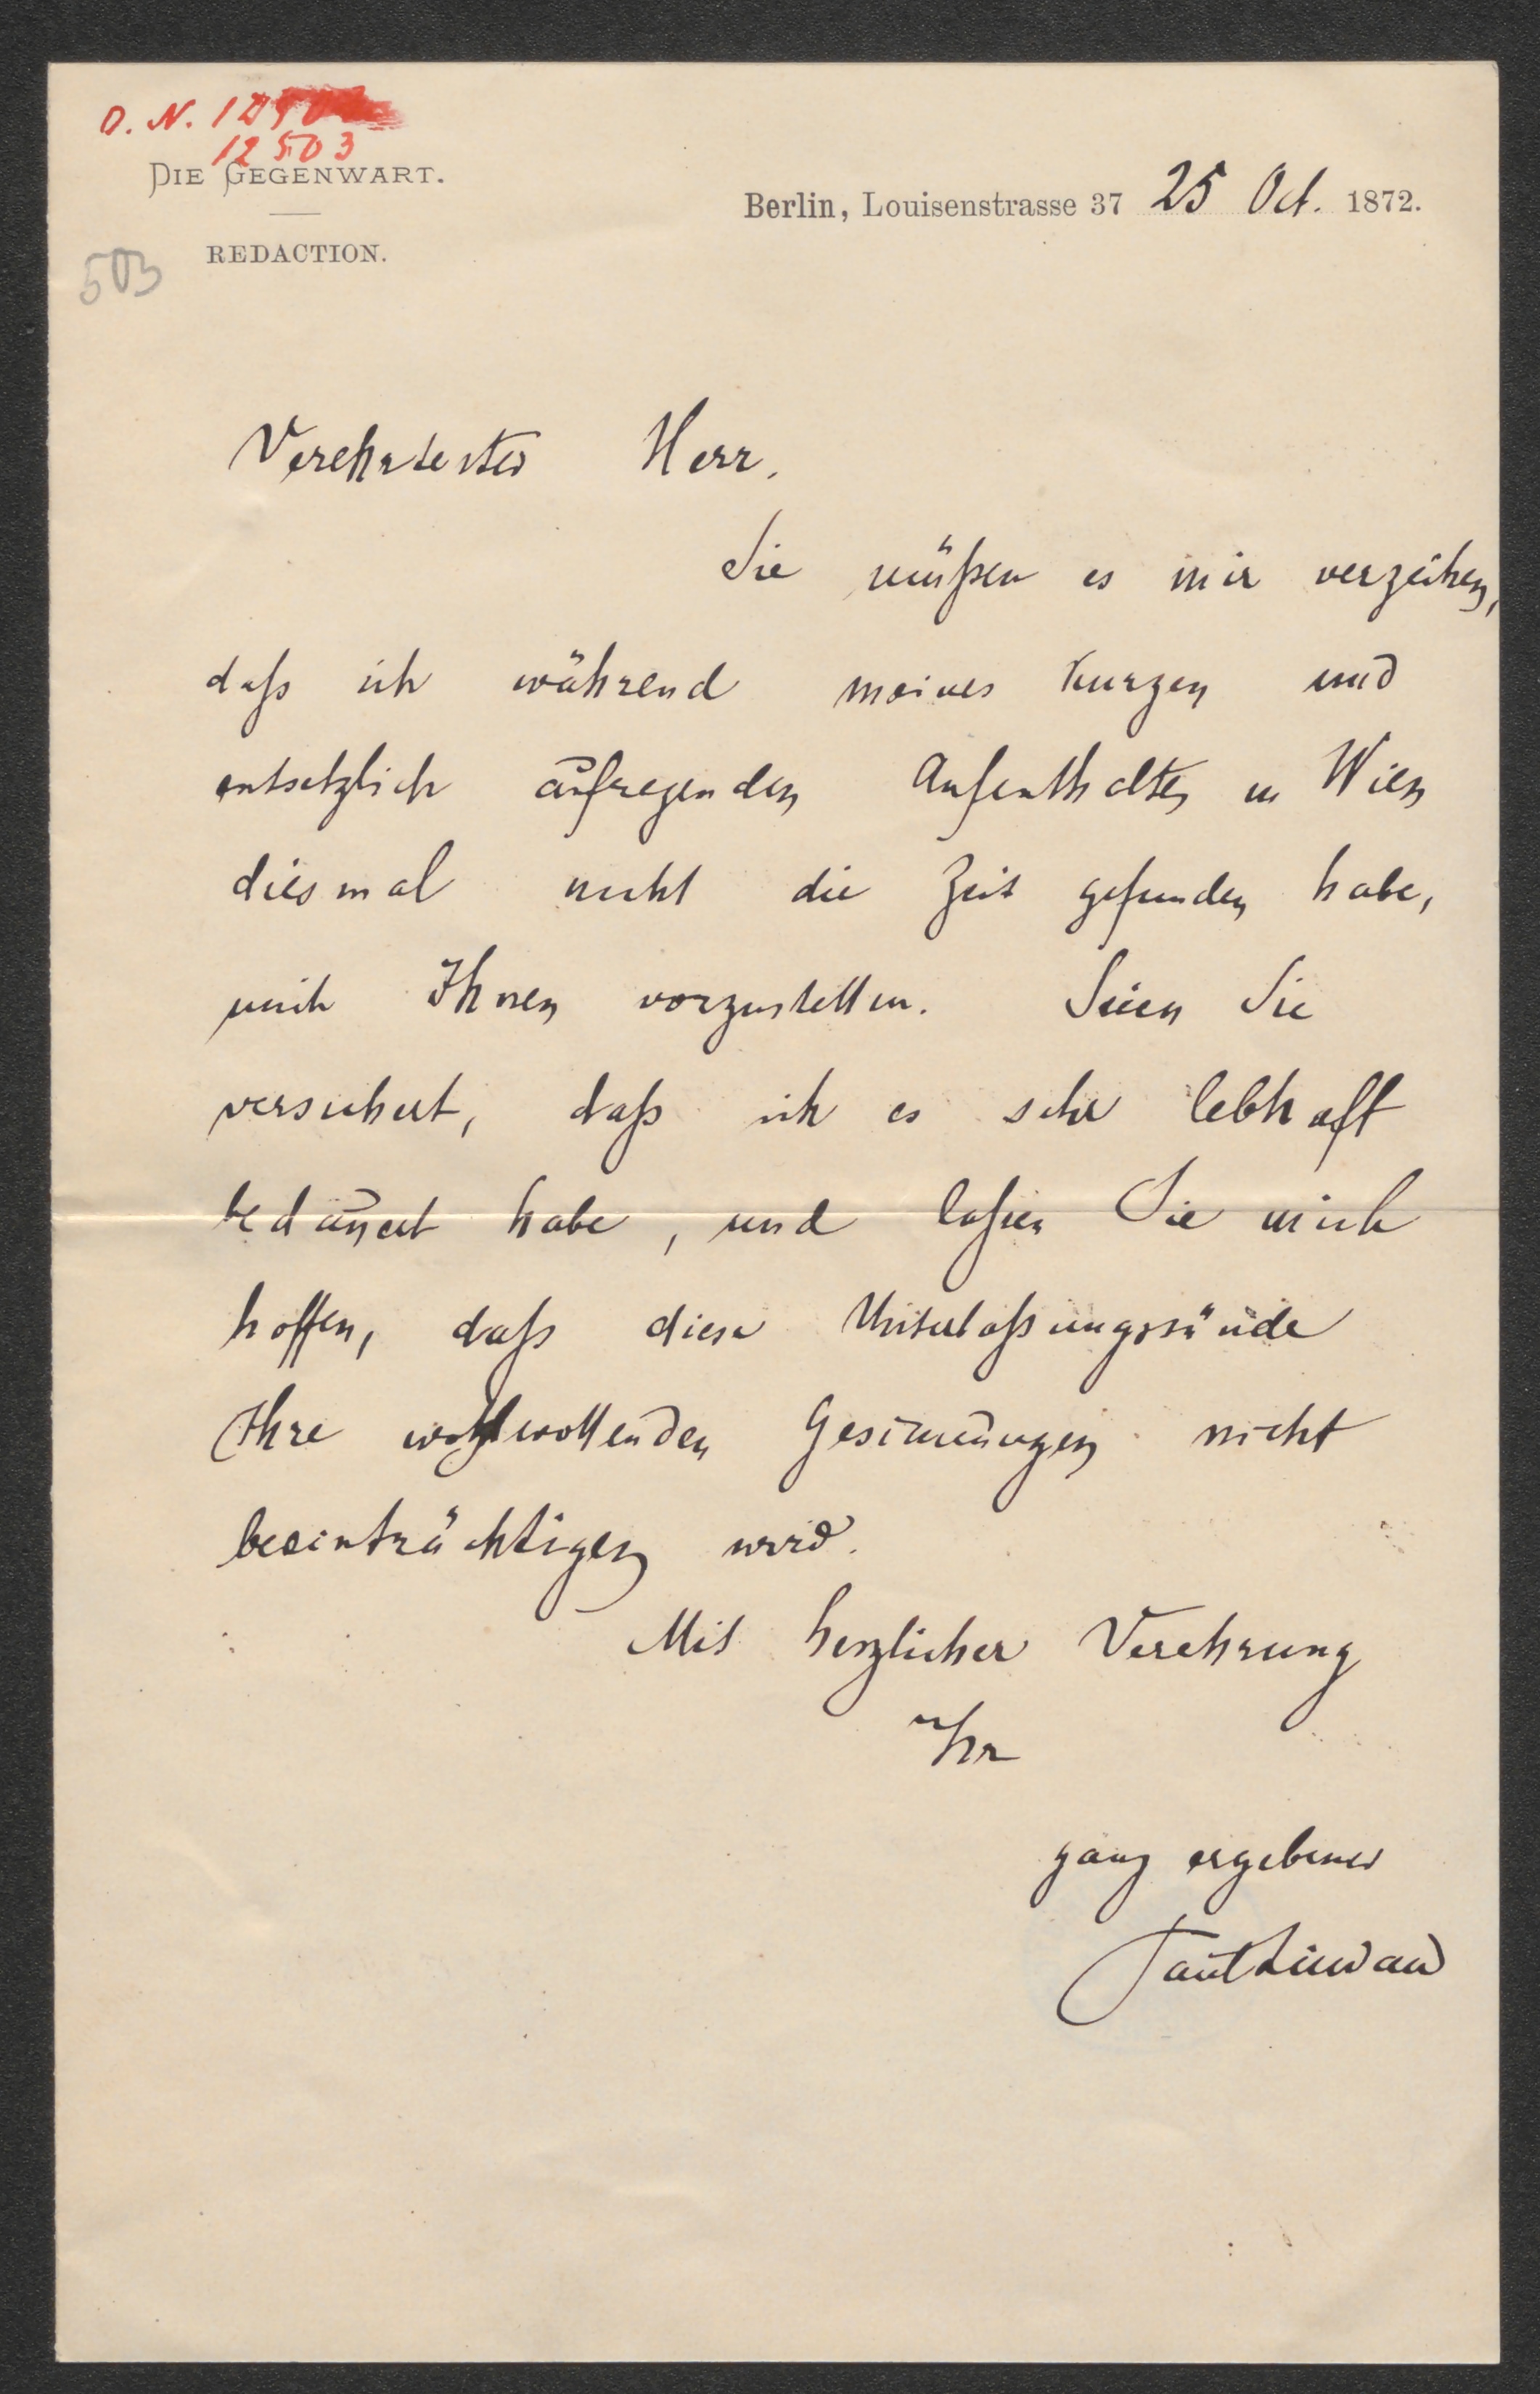 O. N.
12503
DIE GEGENWART.
REDACTION.
503
Berlin, Louisenstrasse 37 25 Oct. 1872.
Verehrtester Herr.
Sie müßen es mir verzeihen,
daß ich während meines kurzen und
entsetzlich aufregenden Aufenthaltes in Wien
diesmal nicht die Zeit gefunden habe,
mich Ihnen vorzustellen. Seien Sie
versichert, daß ich es sehr lebhaft
bedauert habe, und laßen Sie mich
hoffen, daß diese Unterlaßungssünde
Ihre wohlwollenden Gesinnungen nicht
beeinträchtigen wird.
Mit herzlicher Verehrung
Ihr
ganz ergebener
Paul Lindau